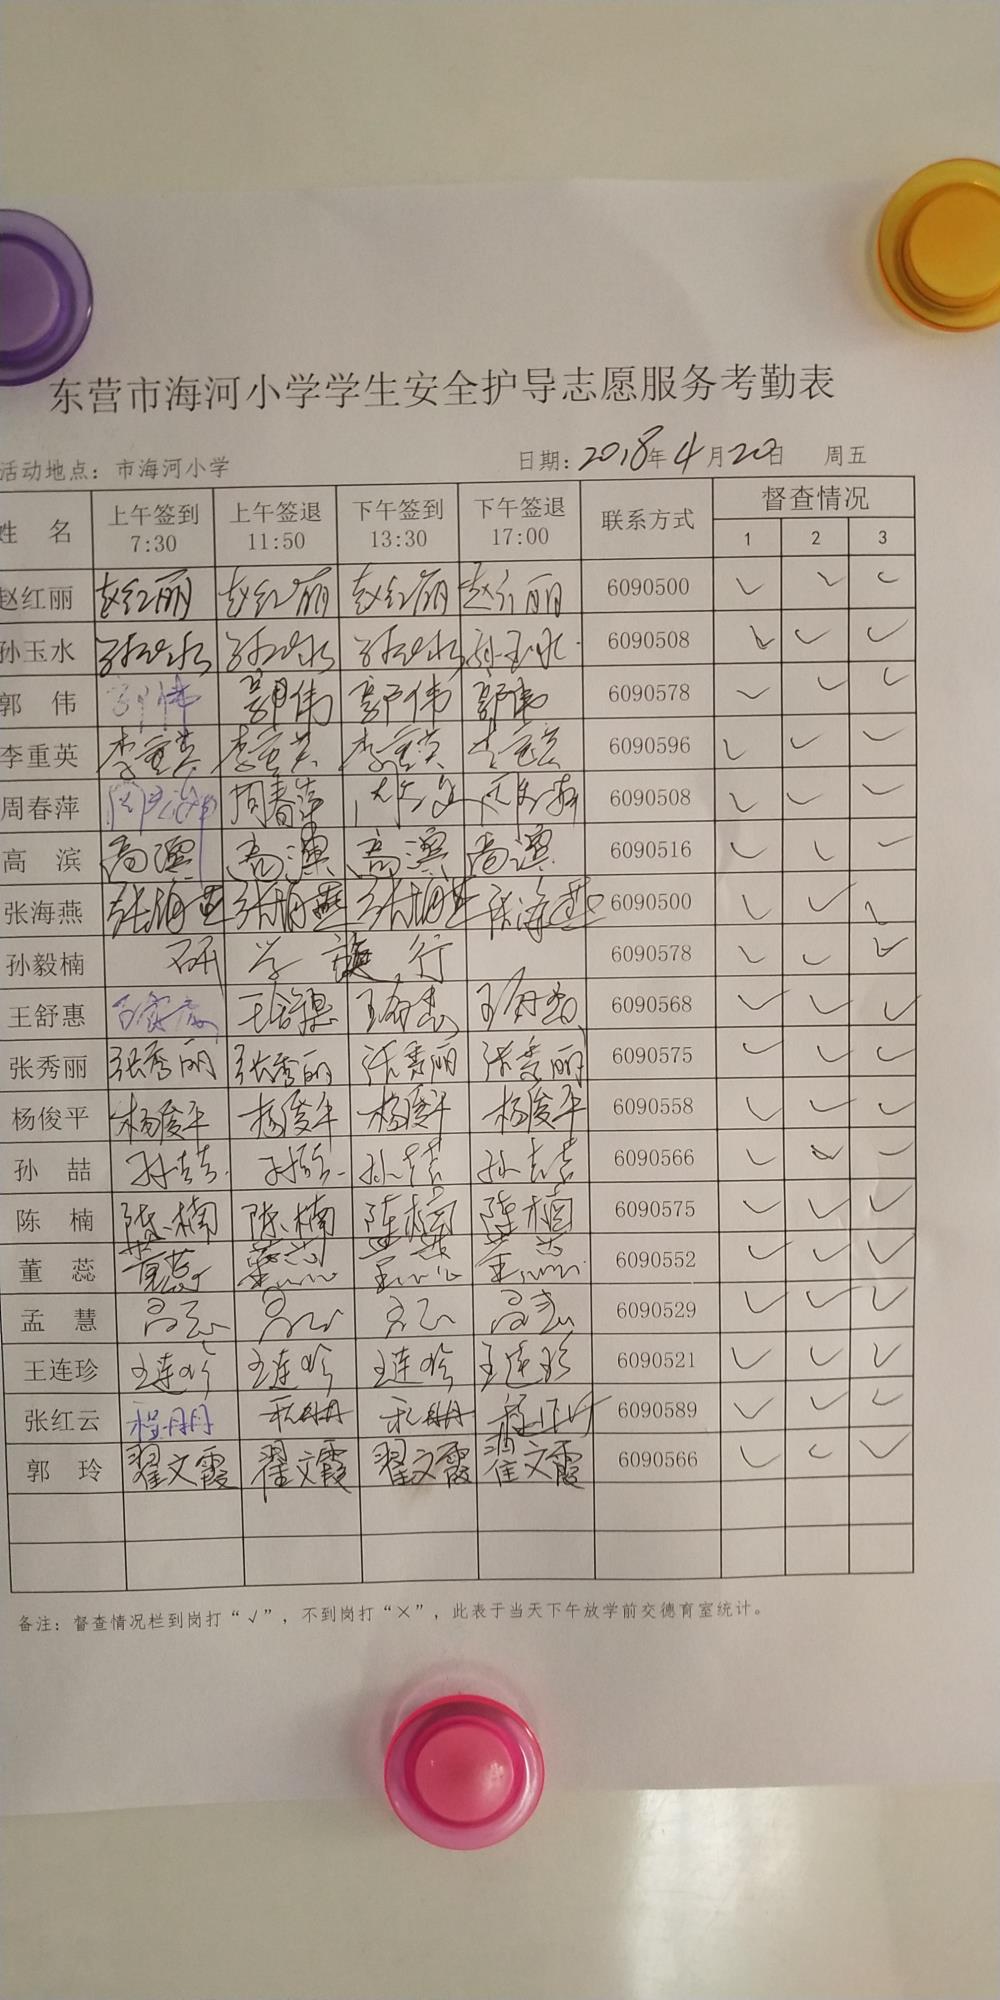 东营市海河小学学生安全护导志愿服务考勤表
活动地点：市海河小学 日期：2018年4月20日 周五
姓 名 上午签到 7:30 上午签退 11:50 下午签到 13:30 下午签退 17:00 联系方式 督查情况 1 2 3
赵红丽 赵红丽 赵红丽 赵红丽 赵红丽 6090500 ✓ ✓ ✓
孙玉水 孙玉水 孙玉水 孙玉水 孙玉水 6090508 ✓ ✓ ✓
郭 伟 郭伟 郭伟 郭伟 郭伟 6090578 ✓ ✓ ✓
李重英 李重英 李重英 李重英 李重英 6090596 ✓ ✓ ✓
周春萍 周春萍 周春萍 6090508 ✓ ✓ ✓
高 滨 高滨 高滨 高滨 高滨 6090516 ✓ ✓ ✓
张海燕 张海燕 张海燕 张海燕 张海燕 6090500 ✓ ✓ ✓
孙毅楠 研 学 旅 行 6090578 ✓ ✓ ✓
王舒惠 王舒惠 王舒惠 王舒惠 6090568 ✓ ✓ ✓
张秀丽 张秀丽 张秀丽 张秀丽 张秀丽 6090575 ✓ ✓ ✓
杨俊平 杨俊平 杨俊平 杨俊平 杨俊平 6090558 ✓ ✓ ✓
孙 喆 孙喆 孙喆 孙喆 孙喆 6090566 ✓ ✓ ✓
陈 楠 陈楠 陈楠 陈楠 陈楠 6090575 ✓ ✓ ✓
董 蕊 董蕊 董蕊 董蕊 董蕊 6090552 ✓ ✓ ✓
孟 慧 6090529 ✓ ✓ ✓
王连珍 王连珍 王连珍 王连珍 王连珍 6090521 ✓ ✓ ✓
张红云 程明 6090589 ✓ ✓ ✓
郭 玲 翟文霞 翟文霞 翟文霞 翟文霞 6090566 ✓ ✓ ✓
备注：督查情况栏到岗打“√”，不到岗打“×”，此表于当天下午放学前交德育室统计。